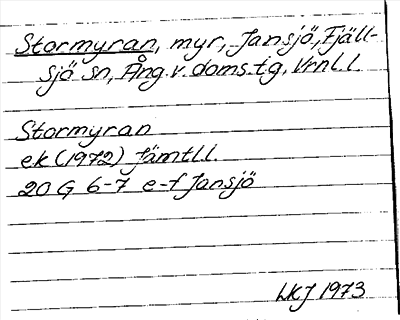 Stormyran, myr, Jansjö, Fjäll-
sjö sn, Ång.v.doms.tg, Vrnl.l.
Stormyran
ek (1972) Jämtl l.
20 G 6-7 e-f Jansjö
LKJ 1973